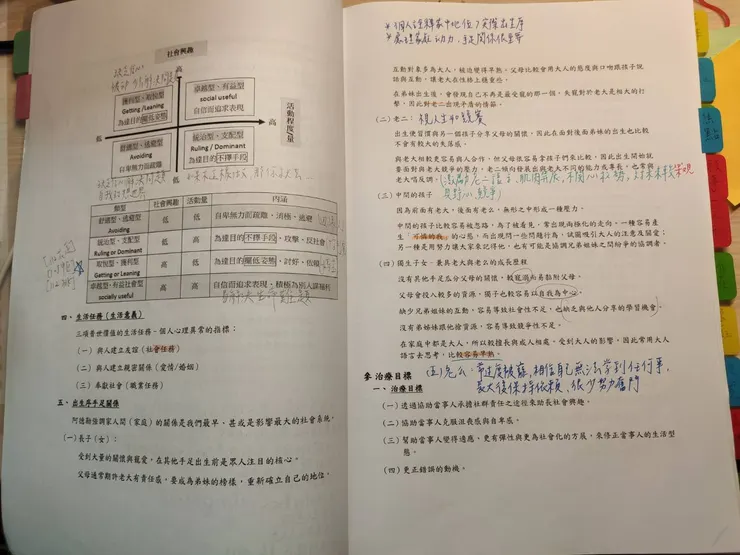 社會興趣
高
獲利型、取悅型
Getting /Leaning
為達目的擺低姿態
卓越型、有益型
social useful
自信而追求表現
活動程度/量
低
高
舒適型、逃避型
Avoiding
以卑無力而疏離
統治型、支配型
Ruling / Dominant
為達目的不擇手段
低
類型
社會興趣
活動量
內涵
舒適型、逃避型
Avoiding
低
低
自卑無力而疏離、消極、逃避
統治型、支配型
Ruling or Dominant
低
高
為達目的不擇手段、攻擊、反社會
取悅型、獲利型
Getting or Leaning
高
低
為達目的擺低姿態、討好、依賴
卓越型、有益社會型
socially useful
高
高
自信而追求表現、積極為別人謀福利
四、生活任務(生活意義)
三項普世價值的生活任務,個人心理異常的指標:
(一)與人建立友誼(社會任務)
(二)與人建立親密關係(愛情/婚姻)
(三)奉獻社會(職業任務)
五、出生序手足關係
阿德勒強調家人間(家庭)的關係是我們最早、甚或是影響最大的社會系統。
(一)長子(女):
受到大量的關懷與寵愛,在其他手足出生前是眾人注目的核心。
父母通常期許老大有責任感,要成為弟妹的榜樣,重新確立自己的地位。
*個人詮釋家中地位>實際出生序
互動對象多為大人,被迫變得早熟。父母比較會用大人的態度與口吻跟孩子說
話與互動,讓老大在性格上穩重些。
在弟妹出生後,會發現自己不再是最受寵的那一個,失寵對於老大是相大的打
擊,因此對老二出現矛盾的情節。
(二)老二:視人生如競賽
出生便習慣與另一個孩子分享父母的關懷,因此在面對後面弟妹的出生也比較
不會有較大的失落感。
與老大相較更容易與人合作,但父母很容易拿孩子們來比較,因此出生開始就
要面對與老大競爭的壓力,老二傾向發展與老大不同的能力或專長,也常與
老大唱反調。
(三)中間的孩子
因為前面有老大,後面有老么,無形之中形成一種壓力。
中間的孩子比較容易被忽略,為了被看見,常出現兩極化的走向,一種容易產
生「可憐的我」的心態,而出現問一些問題行為,試圖吸引大人的注意及關愛;
另一種是用努力讓大家來記得他,也有可能是協調兄弟姐妹之間紛爭的協調者。
(四)獨生子女-兼具老大與老么的成長歷程
沒有其他手足瓜分父母的關懷,較寵溺而易黏附父母。
父母會投入較多的資源,獨子也較容易以自我為中心。
缺少兄弟姐妹的互動,容易導致社會性不足,也缺乏與他人分享的學習機會。
沒有弟姊妹跟他搶資源,容易導致競爭性不足。
在家庭中都是大人,所以較擅長與成人相處,受到大人的影響,因此常用大人
語言去思考,比較容易早熟。
(五)老么:常過度被寵,相信自己無法學到任何事,
長大後保持依賴,很少努力奮鬥
參 治療目標
一、治療目標
(一)透過協助當事人承擔社群責任之途徑來助長社會興趣。
(二)協助當事人克服沮喪感與自卑感。
(三)幫助當事人變得適應、更有彈性與更為社會化的方展,來修正當事人的生活型
態。
(四)更正錯誤的動機。